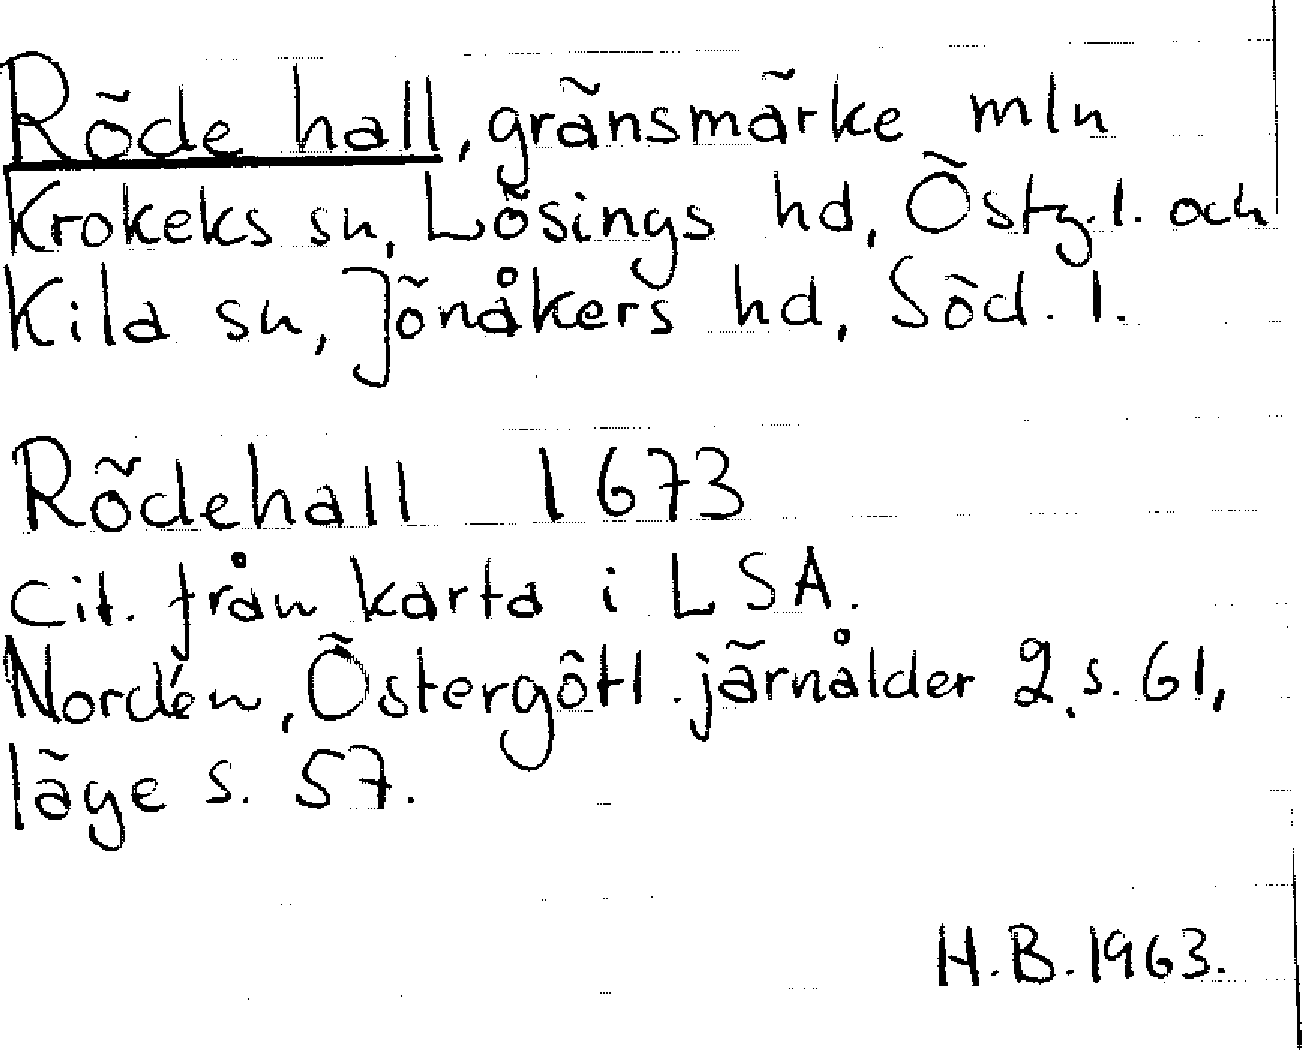 Röde hall, gränsmärke mln
Krokeks sn, Lösings hd, Östg.l. och
Kila sn, Jönåkers hd, Söd. l.
Rödehall 1673
Cit. från karta i LSA.
Nordén, Östergötl. järnålder 2, s. 61,
läge s. 57.
H.B. 1963.